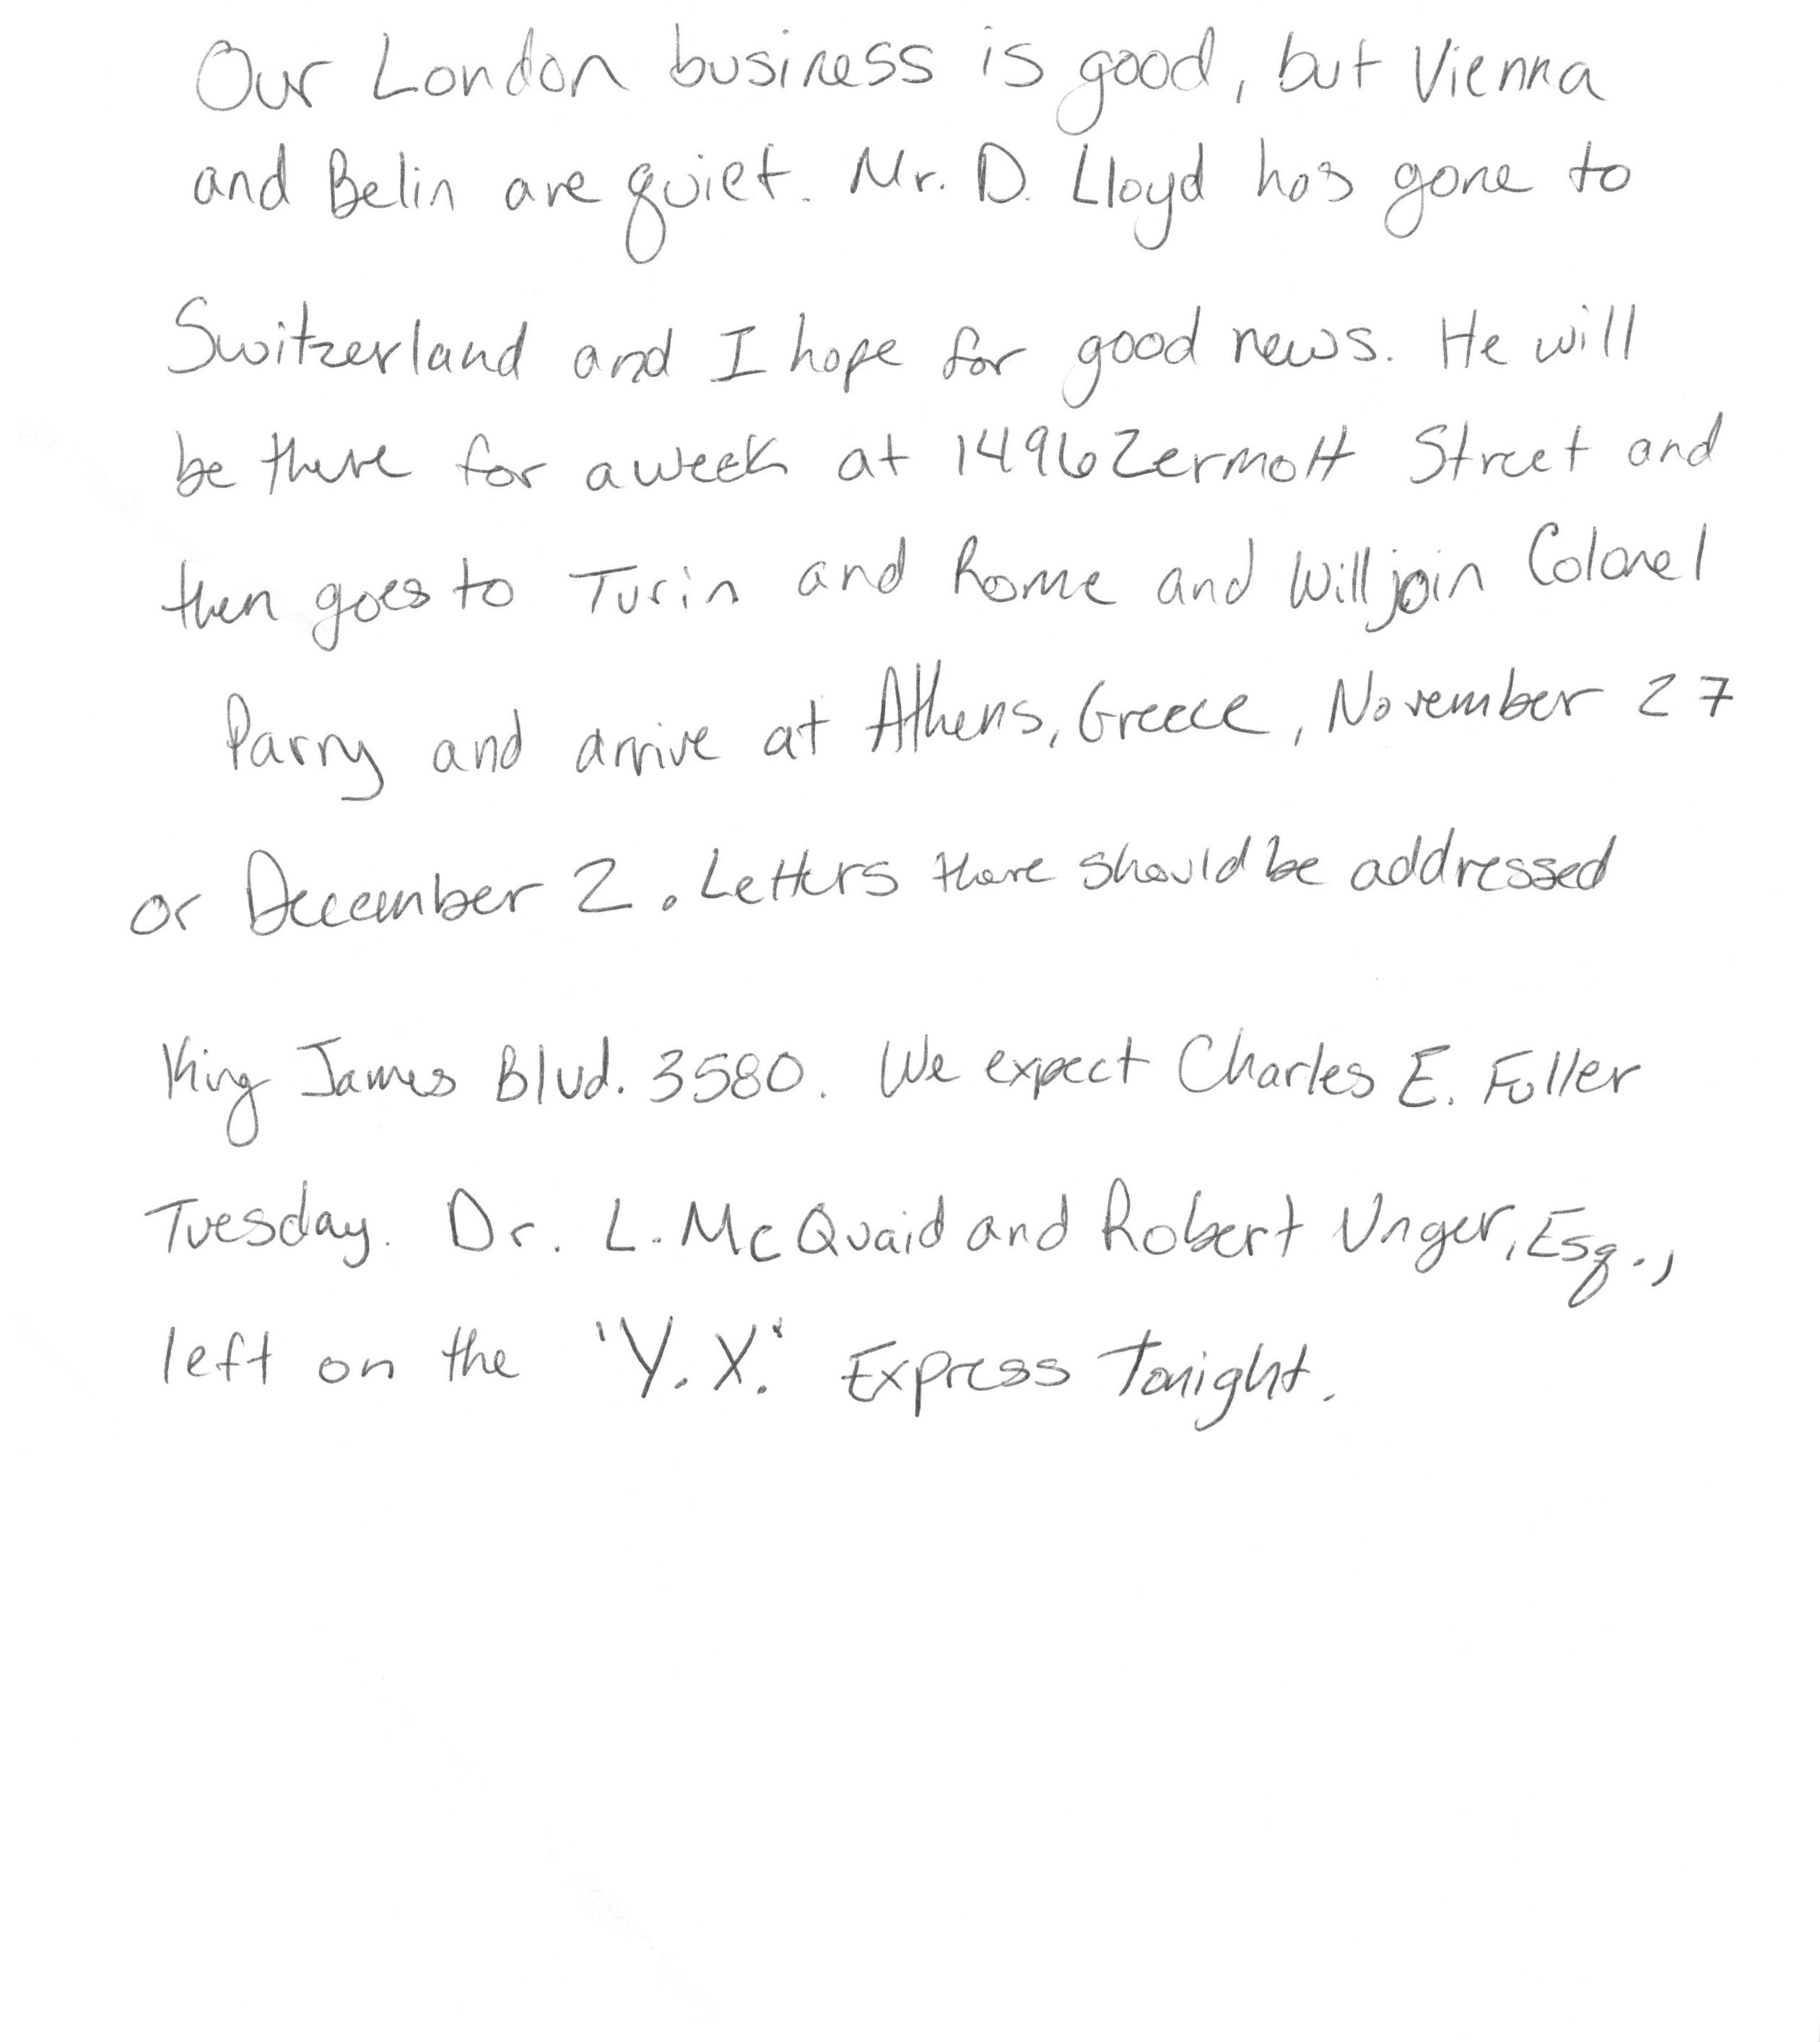 Our London business is good, but Vienna
and Belin are quiet. Mr. D. Lloyd has gone to
Switzerland and I hope for good news. He will
be there for a week at 1496 Zermott Street and
then goes to Turin and Rome and Will join Colonel
Parry and arrive at Athens, Greece, November 27
or December 2. Letters there should be addressed
King James Blvd. 3580. We expect Charles E. Fuller
Tuesday. Dr. L. McQuaid and Robert Unger, Esq.,
left on the "Y.X." Express Tonight.